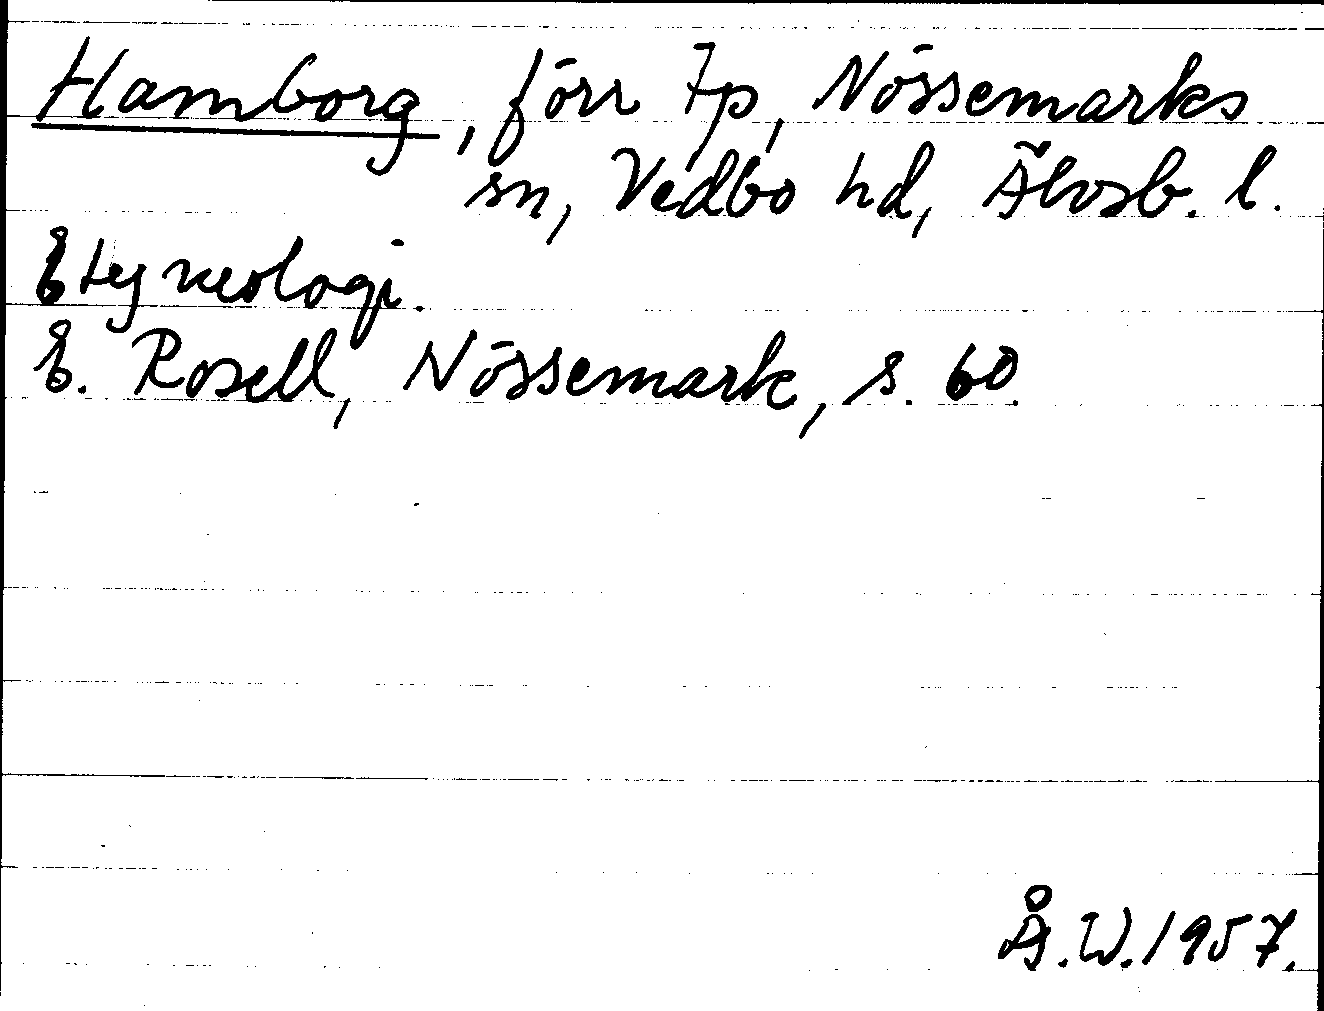 Hamborg, förr tp, Nössemarks
sn, Vedbo hd, Älvsb. l.
Etymologi.
E. Rosell, Nössemark, s. 60.
Å.W. 1957.